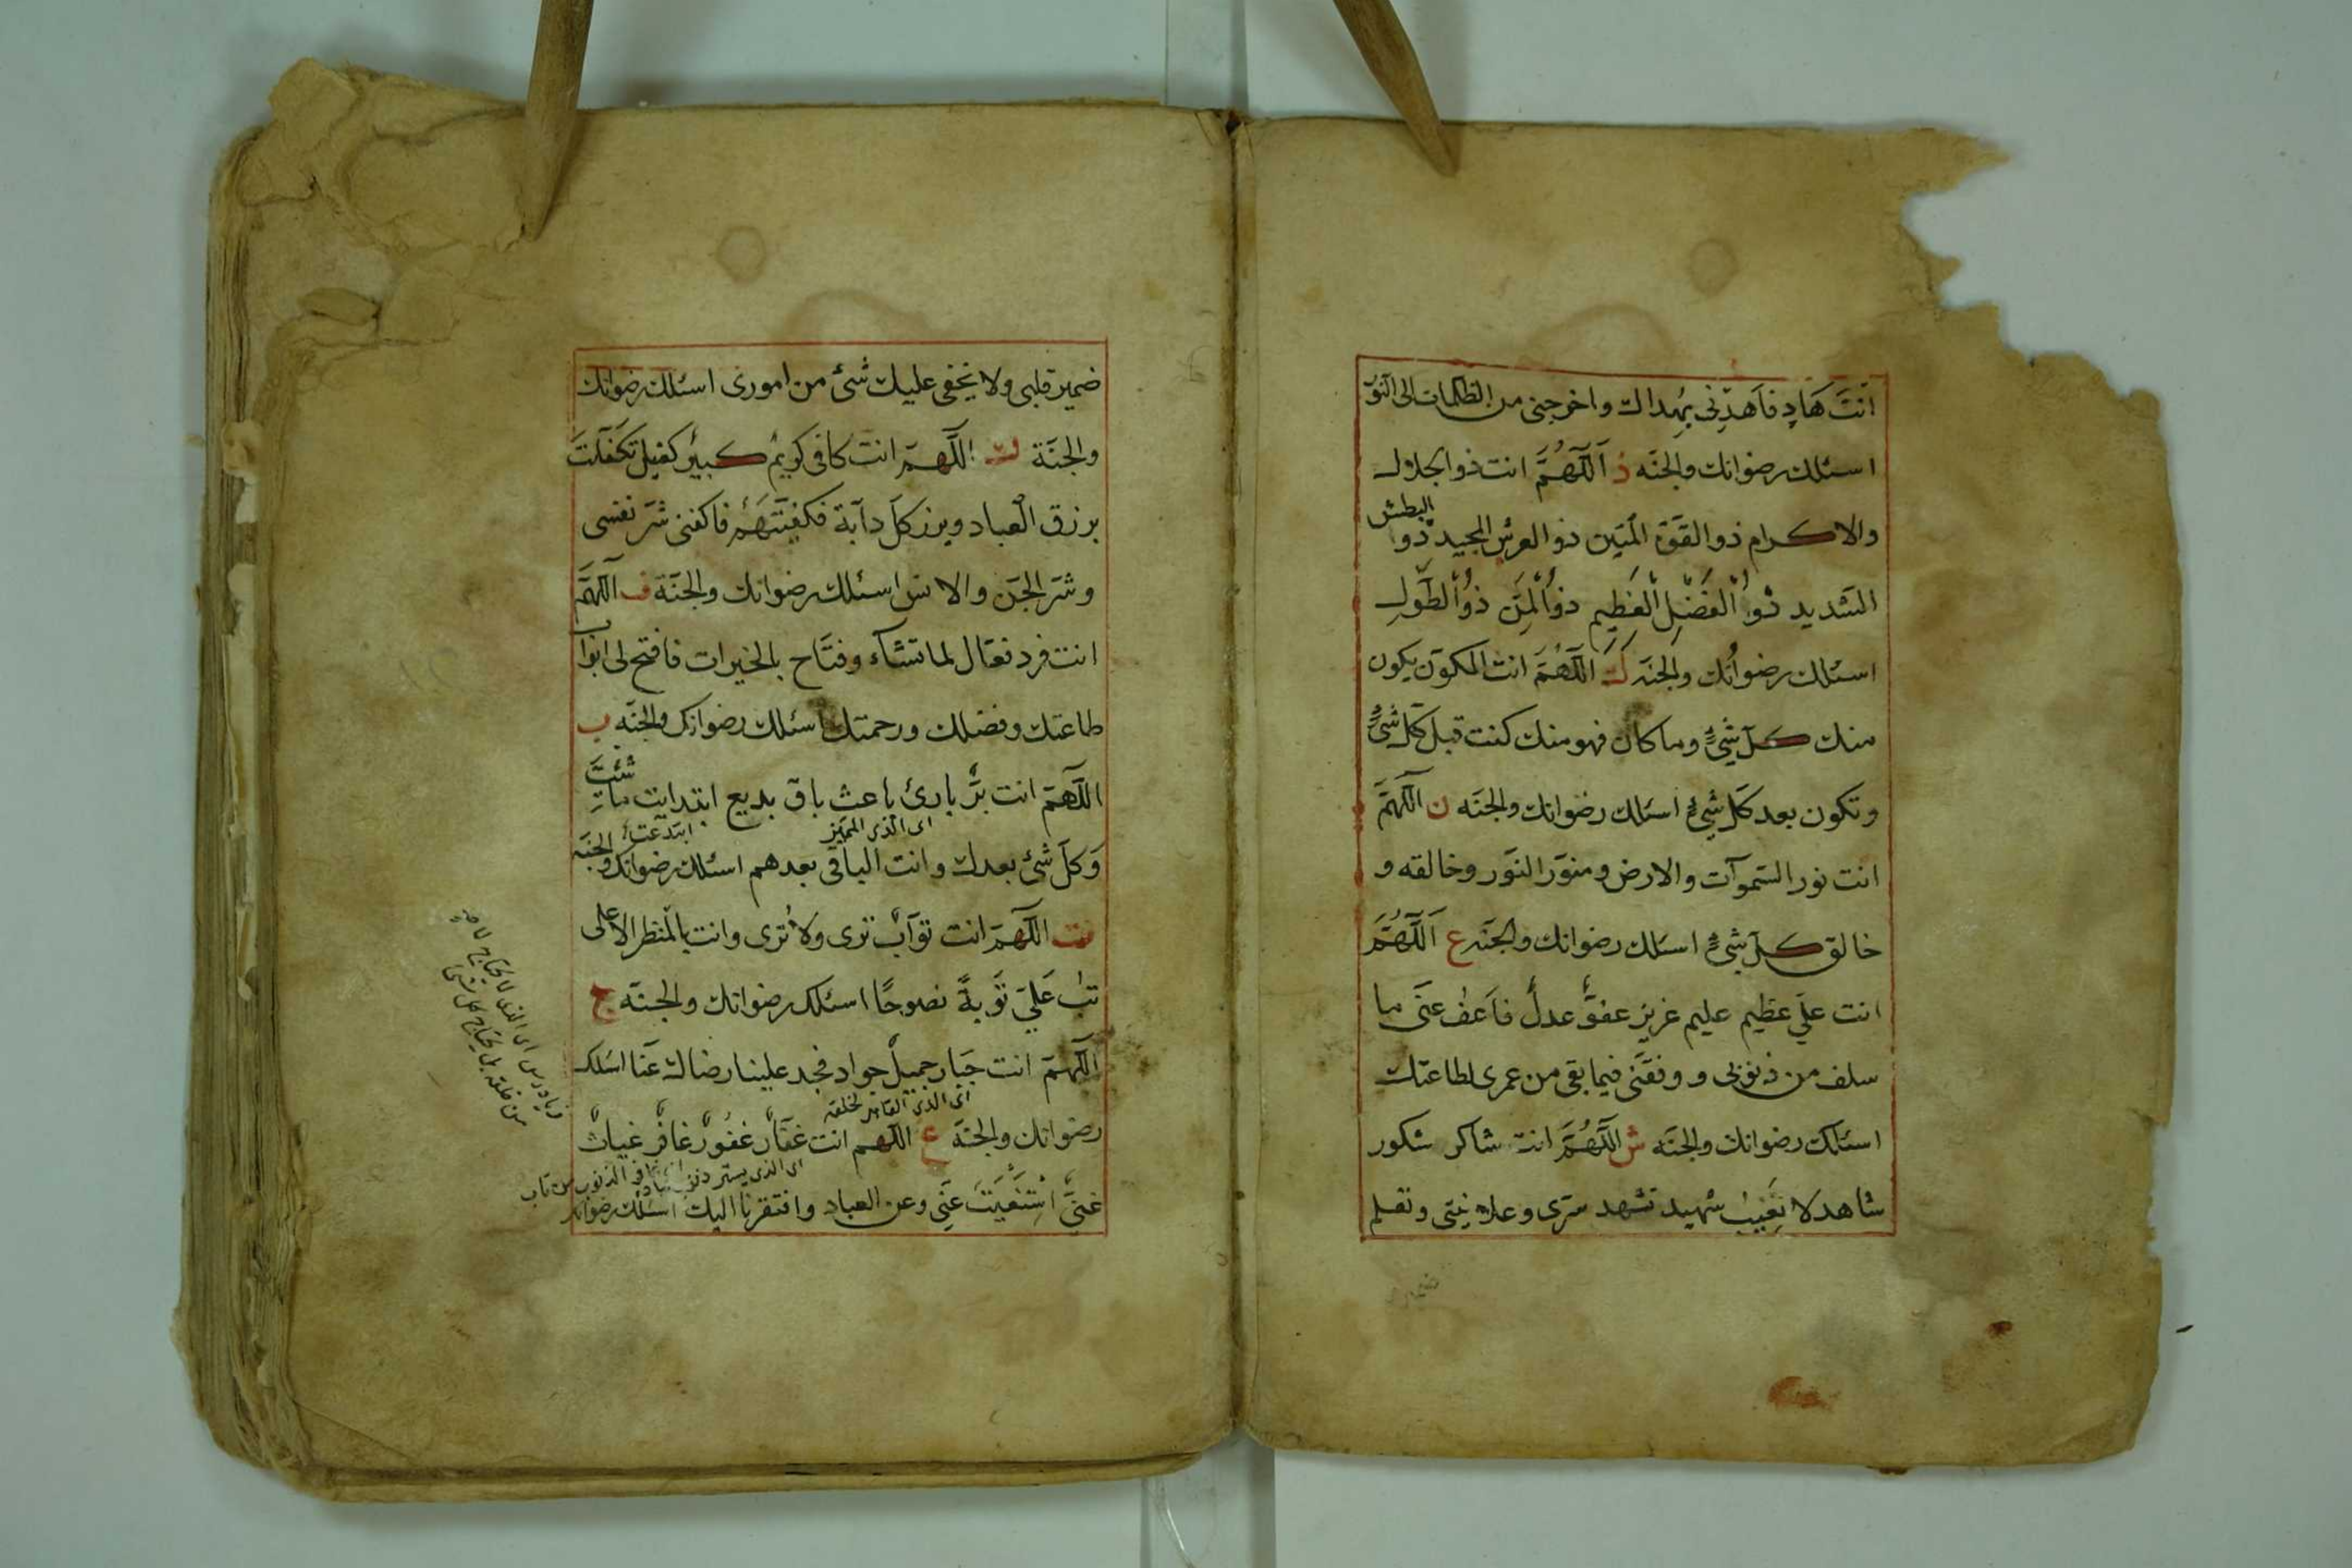 انتَ هَادٍ فاَهدِنی بهُداك واخرجنی من الظلمات الی النور
اسئلك رضوانك والجنّه ذ اَللّٰهُمَّ انت ذوالجلال
والاکرام ذوالقوّة المتین ذوالعرش المجید ذو البطش
الشدید ذُوالْفَضْلِ الْعَظِیم ذُوالْمَنِّ ذُوالطَّولِ
اسئلك رضوانك والجنّه ك اللّٰهُمَّ انت المکوّن یکون
منك کلّ شیءٍ وما کان فهو منك کنت قبل کلّ شیءٍ
وتکون بعد کلّ شیءٍ اسئلك رضوانك والجنّه ن اللّٰهمَّ
انت نور السّموآت والارض ومنوّر النّور وخالقه و
خالق کلّ شیءٍ اسئلك رضوانك والجنّه ع اَللّٰهُمَّ
انت علی عظیم علیم عزیز عفوٌّ عدلٌ فاَعفُ عنّی ما
سلف من ذنوبی و وفقنی فیما بقی من عمری لطاعتك
اسئلك رضوانك والجنّه ش اللّٰهُمَّ انت شاکر شکور
شاهد لا تغیب شهید تشهد سرّی وعلانیتی وتعلم
ضمیر قلبی ولا یخفی علیك شئ من اموری اسئلك رضوانك
والجنّة ك اللّٰهمّ انت کافی کریم کبیر کفیل تکفّلت
برزق العباد وبرزق کلّ دآبة فکفیتهم فاکفنی شرّ نفسی
وشرّ الجنّ والانس اسئلك رضوانك والجنّة ف اللّٰهمّ
انت فرد فعّال لما تشآء وفتّاح بالخیرات فافتح لی ابواب
طاعتك وفضلك ورحمتك اسئلك رضوانك والجنّه ب
اللّٰهمّ انت برٌّ بارئ باعث باق بدیع ابتدایت ما شئت
ای الذی الممیّز ابتدعت
وکلّ شئ بعدك وانت الباقی بعدهم اسئلك رضوانك والجنّه
ت اللّٰهمّ انت توّآب تری ولا تُری وانت بالمنظر الاعلی
تب علیّ توبةً نصوحًا اسئلك رضوانك والجنّه ج
اللّٰهمّ انت جبّار جمیل جواد فجد علینا رضاك عنّا اسئلك
ای الذی القاهر لخلقه
رضوانك والجنّة غ اللّٰهم انت غفّار غفورٌ غافر غیاث
ای الذی یستر ذنوب الذنوب من تاب
غنیٌّ اسْتَغْنَیْتَ عَنّی وعن العباد وافتقرنا الیك اسئلك رضوانك
ای الذی لا یحتاج
من خلقه بل یحتاج کل شئ